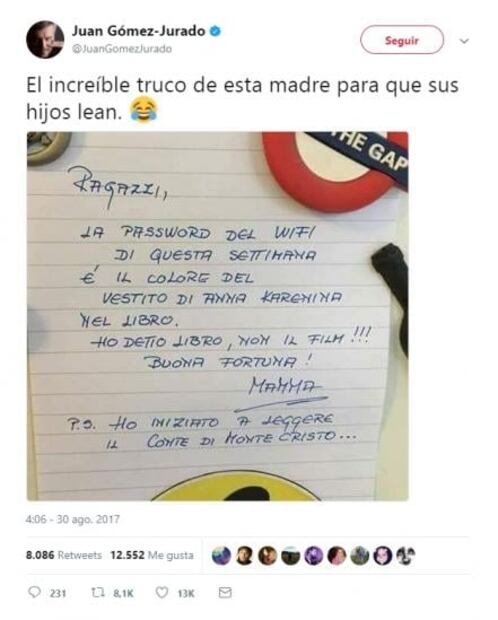 Juan Gómez-Jurado
@JuanGomezJurado
Seguir
El increíble truco de esta madre para que sus
hijos lean. 😂
THE GAP
RAGAZZI,
LA PASSWORD DEL WIFI
DI QUESTA SETTIMANA
E' IL COLORE DEL
VESTITO DI ANNA KARENINA
NEL LIBRO.
HO DETTO LIBRO, NON IL FILM!!!
BUONA FORTUNA!
MAMMA
P.S. HO INIZIATO A LEGGERE
IL CONTE DI MONTE CRISTO...
4:06 - 30 ago. 2017
8.086 Retweets 12.552 Me gusta
231 8,1K 13K